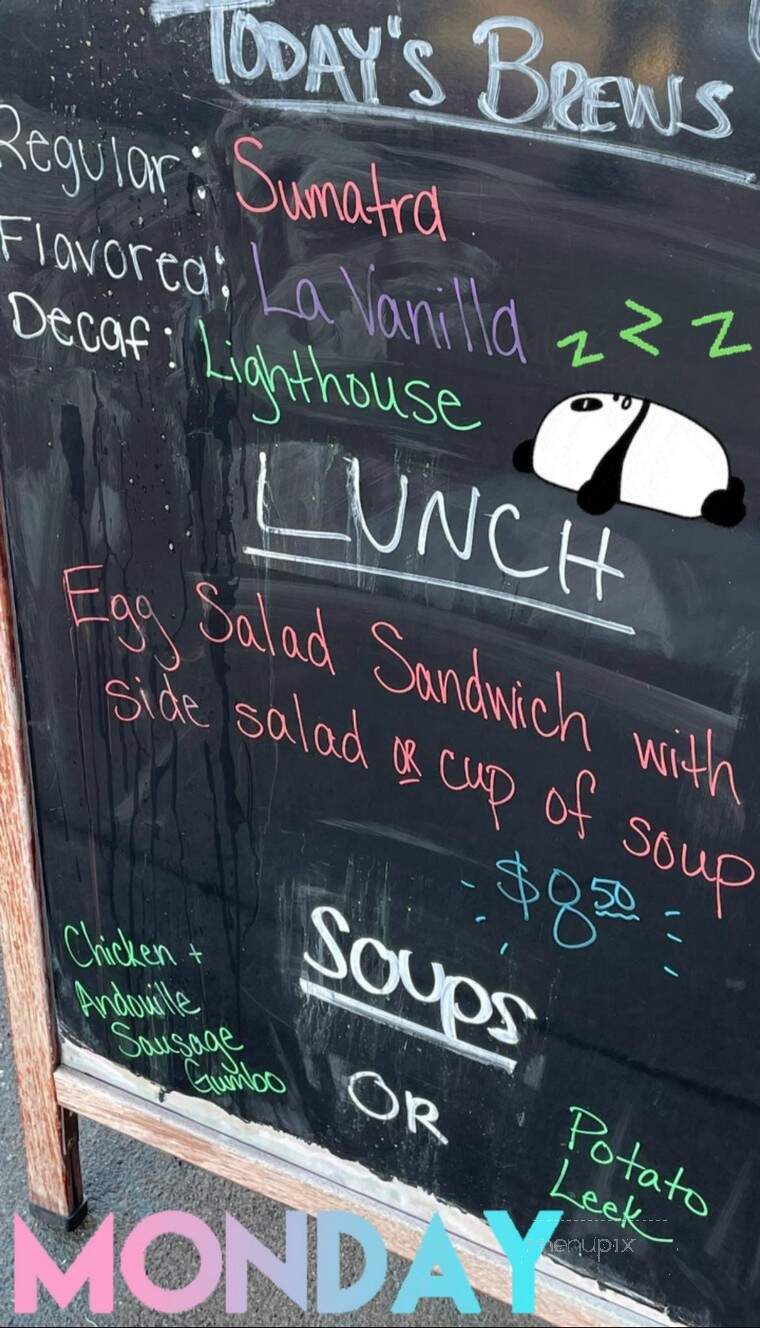 TODAY'S BREWS
Regular: Sumatra
Flavored: La Vanilla
zzz
Decaf: Lighthouse
LUNCH
Egg Salad Sandwich with
side salad OR cup of soup
$8.50
Soups
Chicken +
Andouille
Sausage
Gumbo
OR
Potato
Leek
MONDAY
menupix